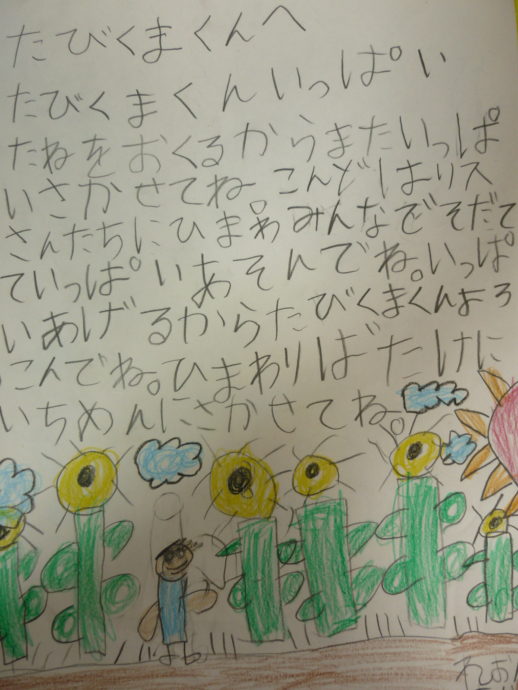 たびくまくんへ
たびくまくんいっぱい
たねをおくるからまたいっぱ
いさかせてね。こんどはリス
さんたちにひまわみんなでそだて
ていっぱいあそんでね。いっぱ
いあげるからたびくまくんよろ
こんでね。ひまわりばたけに
いちめんにさかせてね。
れおん